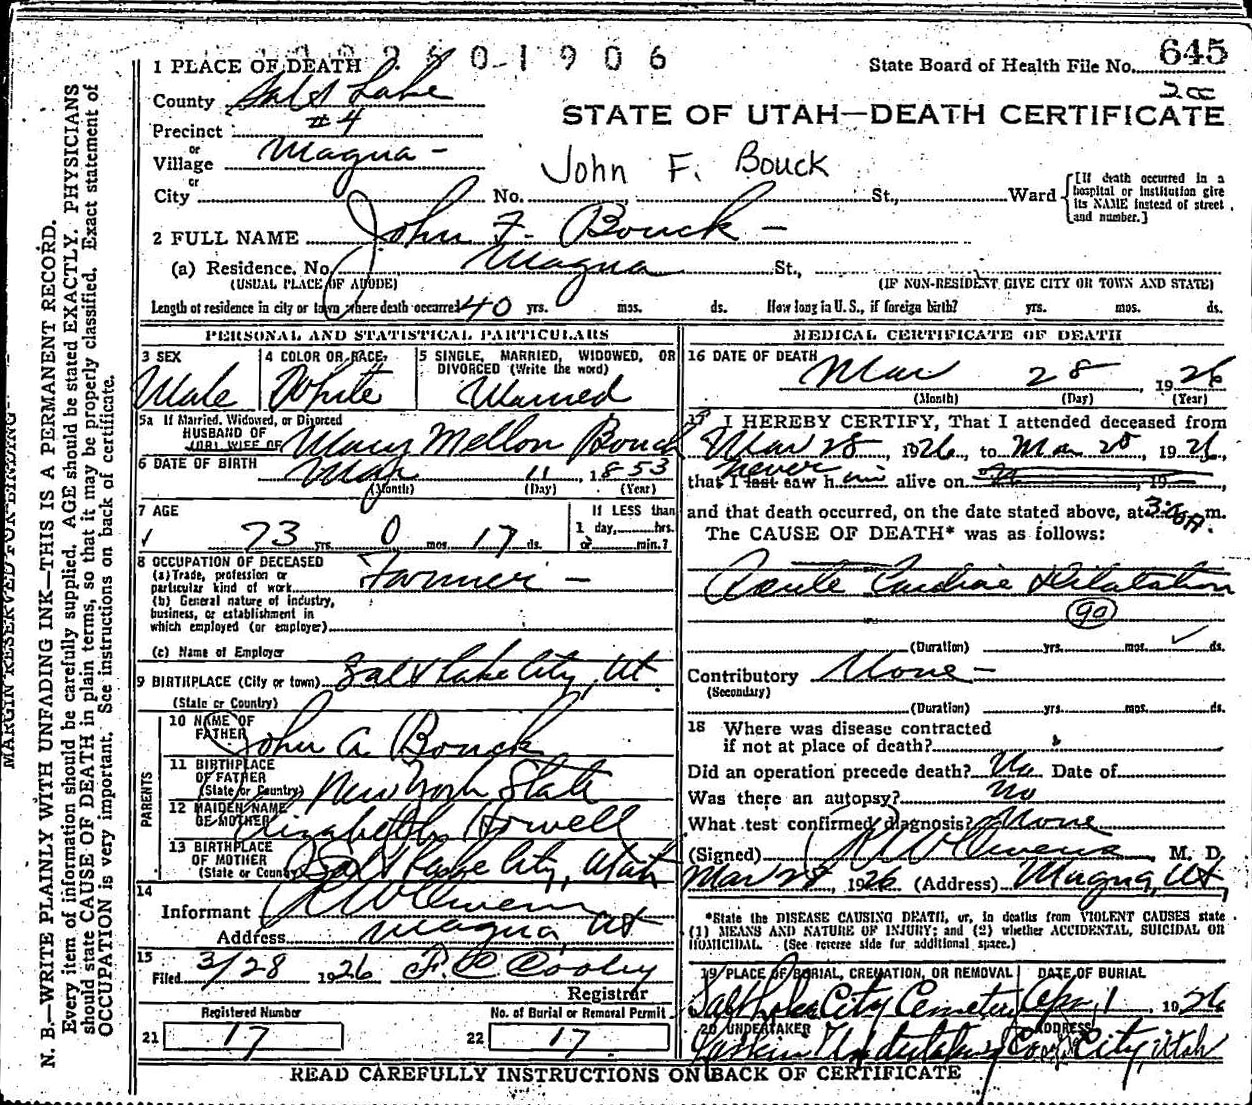 1 PLACE OF DEATH
2 5 0 - 1 9 0 6
State Board of Health File No. 645
200
County Salt Lake
STATE OF UTAH—DEATH CERTIFICATE
Precinct #4
or
Village Magna -
John F. Bouck
or
City No. St., Ward
[If death occurred in a hospital or institution give its NAME instead of street and number.]
2 FULL NAME John F. Bouck -
(a) Residence. No. Magna St.,
(USUAL PLACE OF ABODE) (IF NON-RESIDENT GIVE CITY OR TOWN AND STATE)
Length of residence in city or town where death occurred 40 yrs. mos. ds. How long in U.S., if foreign birth? yrs. mos. ds.
PERSONAL AND STATISTICAL PARTICULARS
3 SEX Male
4 COLOR OR RACE White
5 SINGLE, MARRIED, WIDOWED, OR DIVORCED (Write the word) Married
5a If Married, Widowed, or Divorced
HUSBAND OF
(OR) WIFE OF Mary Mellon Bouck
6 DATE OF BIRTH Mar 11, 1853
(Month) (Day) (Year)
7 AGE
73 yrs. 0 mos. 17 ds.
If LESS than
1 day, hrs.
or min.?
8 OCCUPATION OF DECEASED
(a) Trade, profession or
particular kind of work Farmer -
(b) General nature of industry,
business, or establishment in
which employed (or employer)
(c) Name of Employer
9 BIRTHPLACE (City or town) Salt Lake City, Ut.
(State or Country)
PARENTS
10 NAME OF
FATHER John A. Bouck
11 BIRTHPLACE
OF FATHER
(State or Country) New York State
12 MAIDEN NAME
OF MOTHER Elizabeth Howell
13 BIRTHPLACE
OF MOTHER
(State or Country) Salt Lake City, Utah
14
Informant
Address Magna, Ut
15
Filed 3/28 1926 F. C. Cooley
Registrar
Registered Number
21 17
No. of Burial or Removal Permit
22 17
MEDICAL CERTIFICATE OF DEATH
16 DATE OF DEATH
Mar 28, 1926
(Month) (Day) (Year)
17 I HEREBY CERTIFY, That I attended deceased from
Mar 28, 1926, to Mar 28, 1926,
never
that I last saw him alive on , 19 ,
and that death occurred, on the date stated above, at m.
The CAUSE OF DEATH* was as follows:
Acute Cardiac Dilatation
90
(Duration) yrs. mos. ds.
Contributory None -
(Secondary)
(Duration) yrs. mos. ds.
18 Where was disease contracted
if not at place of death?
Did an operation precede death? No Date of
Was there an autopsy? No
What test confirmed diagnosis? None
(Signed) Owens, M. D.
Mar 28, 1926 (Address) Magna, Ut,
*State the DISEASE CAUSING DEATH, or, in deaths from VIOLENT CAUSES state
(1) MEANS AND NATURE OF INJURY; and (2) whether ACCIDENTAL, SUICIDAL OR
HOMICIDAL. (See reverse side for additional space.)
19 PLACE OF BURIAL, CREMATION, OR REMOVAL
Salt Lake City Cemetery
DATE OF BURIAL
Apr 1 1926
20 UNDERTAKER
Larkin Undertaking Co
ADDRESS
City, Utah
READ CAREFULLY INSTRUCTIONS ON BACK OF CERTIFICATE
MARGIN RESERVED FOR BINDING
N. B.—WRITE PLAINLY WITH UNFADING INK—THIS IS A PERMANENT RECORD.
Every item of information should be carefully supplied. AGE should be stated EXACTLY. PHYSICIANS
should state CAUSE OF DEATH in plain terms, so that it may be properly classified. Exact statement of
OCCUPATION is very important. See instructions on back of certificate.